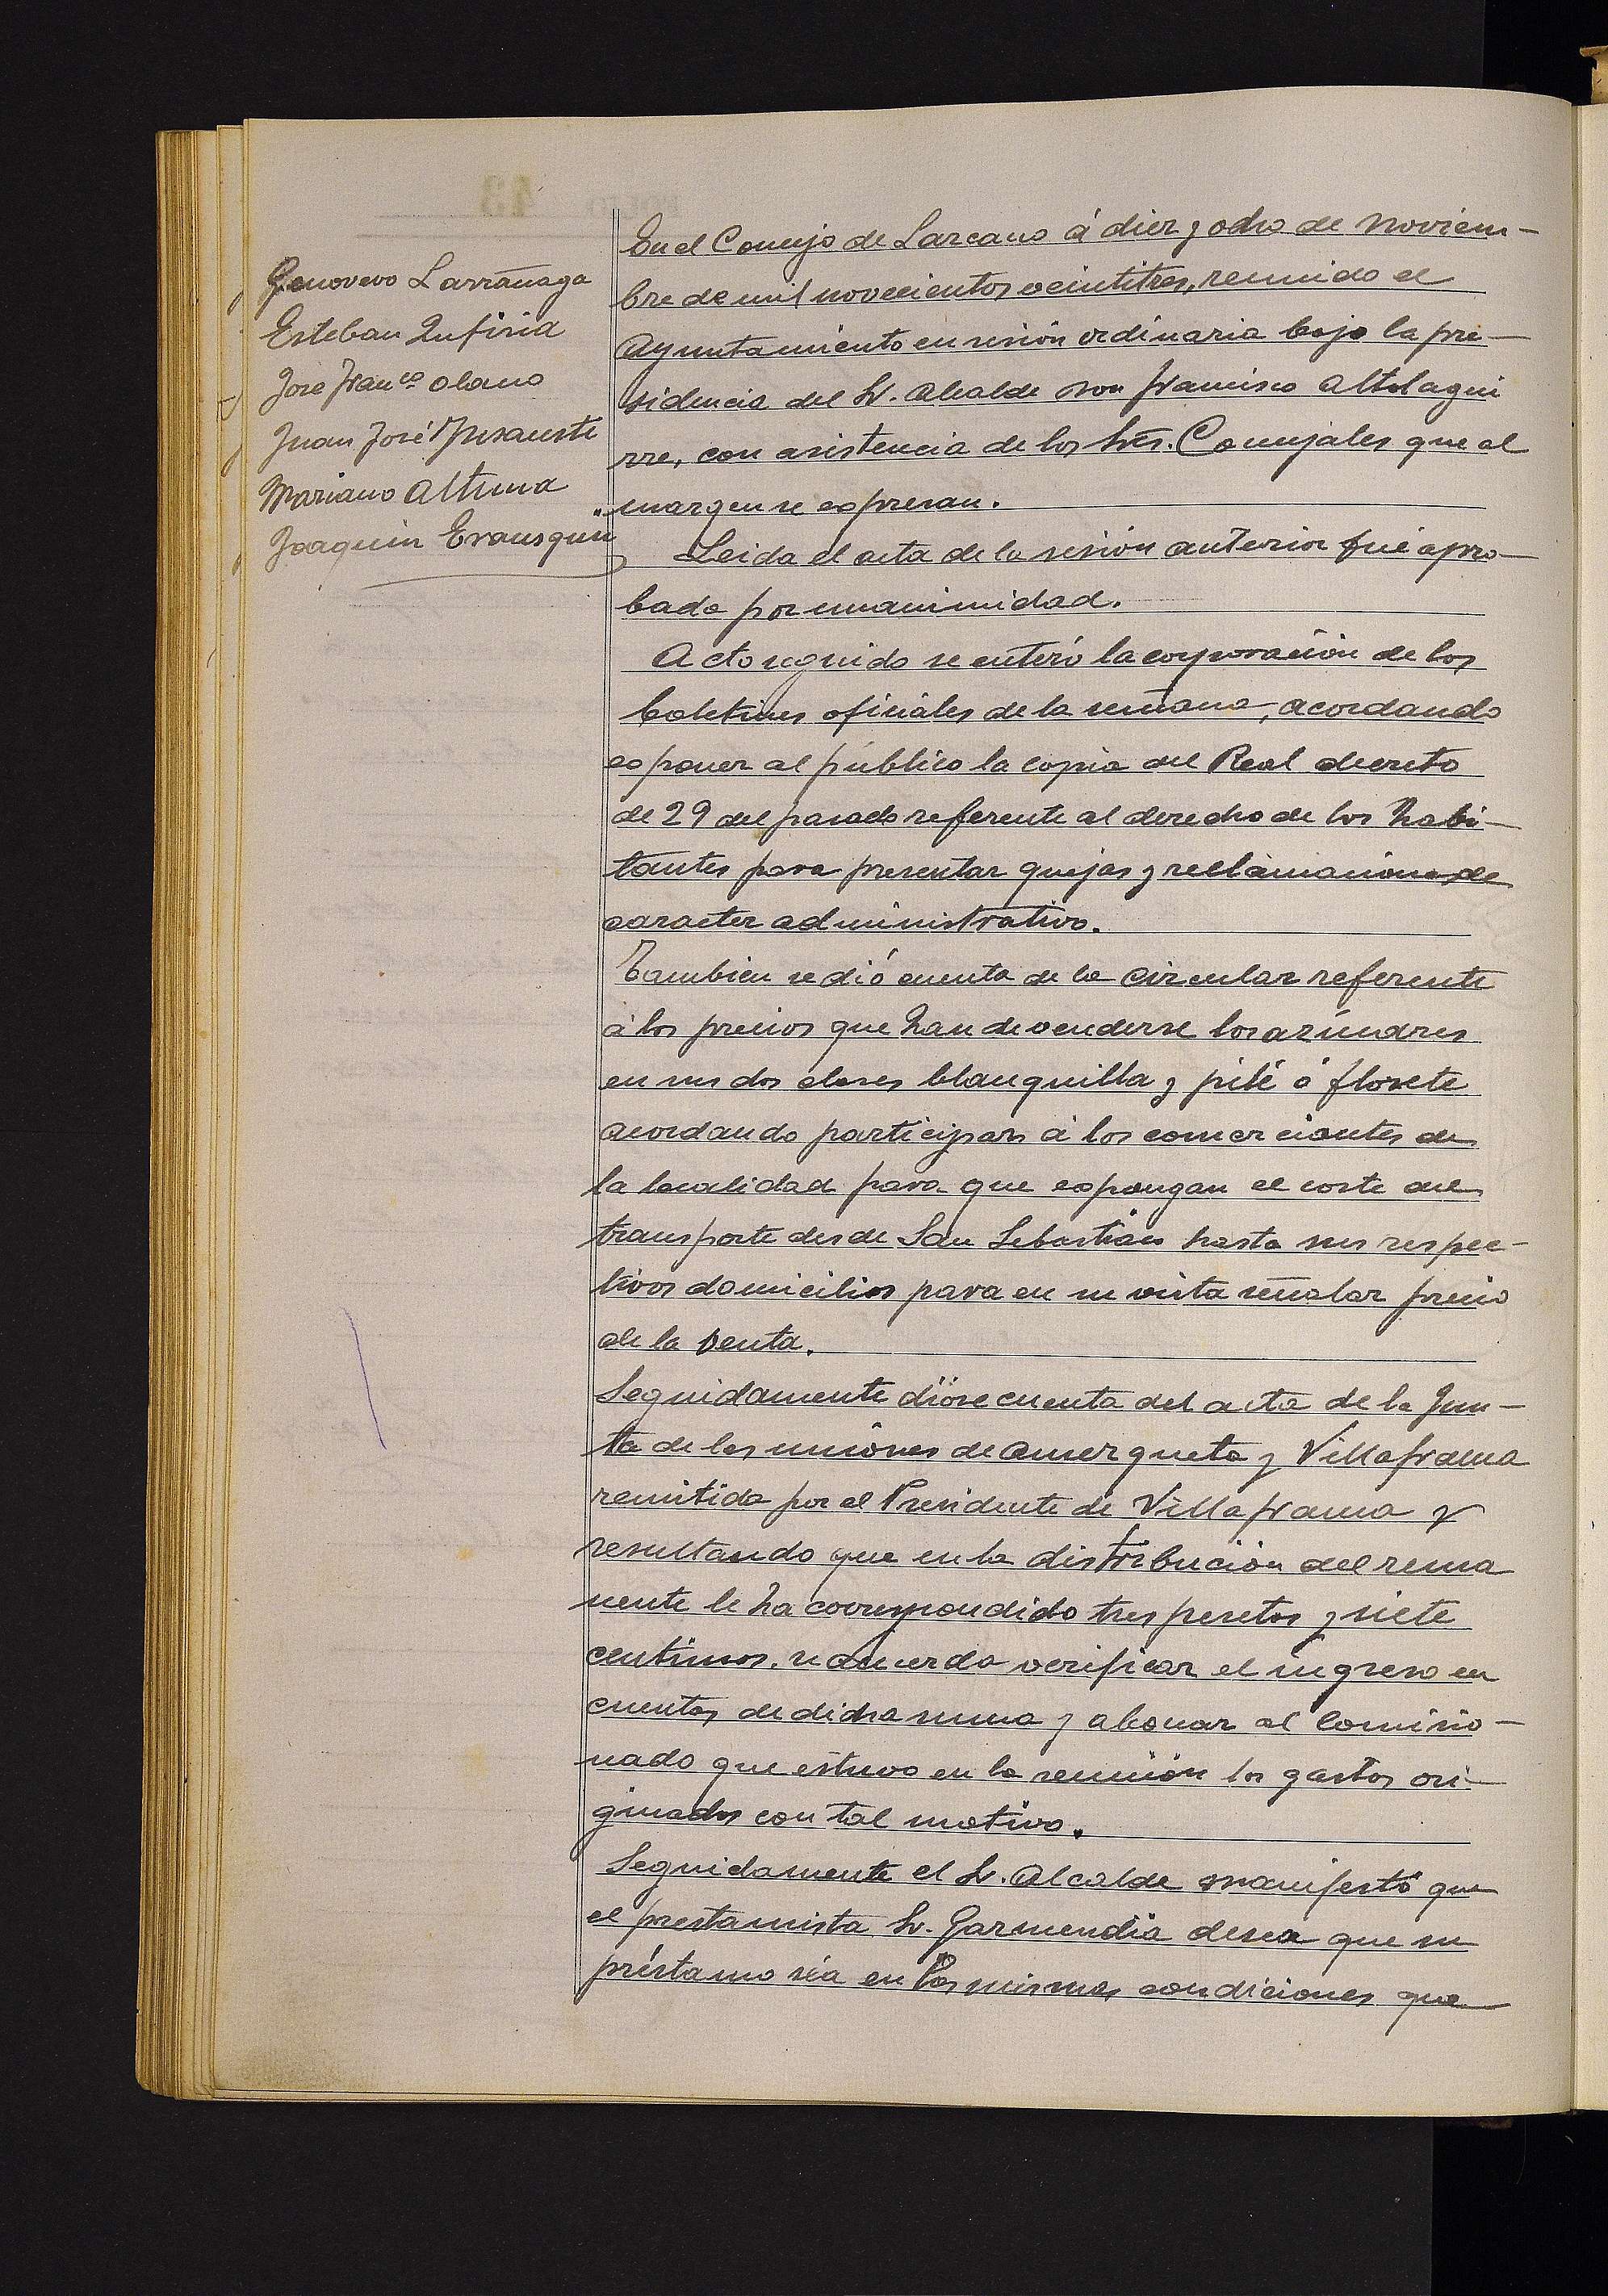 Genovevo Larrañaga
Esteban
José Franco Olano
Juan José
Mariano Altuna
Joaquin Erausquin
En el Concejo de Lazcano á diez y ocho de Noviem-
bre de mil novecientos veintitres, reunido el
Ayuntamiento en sesión ordinaria bajo la pre-
sidencia del Sr. Alcalde Don Francisco Altolagui
rre, con asistencia de los Sres. Concejales que al
margen se expresan.
Leida el acta de la sesión anterior fué apro-
bada por unanimidad.
Acto seguido se enteró la corporación de los
boletines oficiales de la semana, acordando
exponer al público la copia del Real decreto
de 29 del pasado referente al derecho de los habi-
tantes para presentar quejas y reclamaciones de
caracter administrativo.
Tambien se dió cuenta de la circular referente
á los precios que han de venderse los azúcares
en sus dos clases blanquilla y pilé ó florete
acordando participar á los comerciantes de
la localidad para que expongan el coste del
transporte desde San Sebastián hasta sus respec-
tivos domicilios para en su vista señalar precio
de la venta.
Seguidamente dióse cuenta del acta de la Jun-
ta de las uniones de Amezqueta y Villafranca
remitida por el Presidente de Villafranca y
resultando que en la distribución del rema
nente le ha correspondido tres pesetas y siete
centimos, se acuerda verificar el ingreso en
cuentas de dicha suma y abonar al comisio-
nado que estuvo en la reunión los gastos ori-
ginados con tal motivo.
Seguidamente el Sr. Alcalde manifestó que
el prestamista Sr. Garmendia desea que su
préstamo sea en las mismas condiciones que